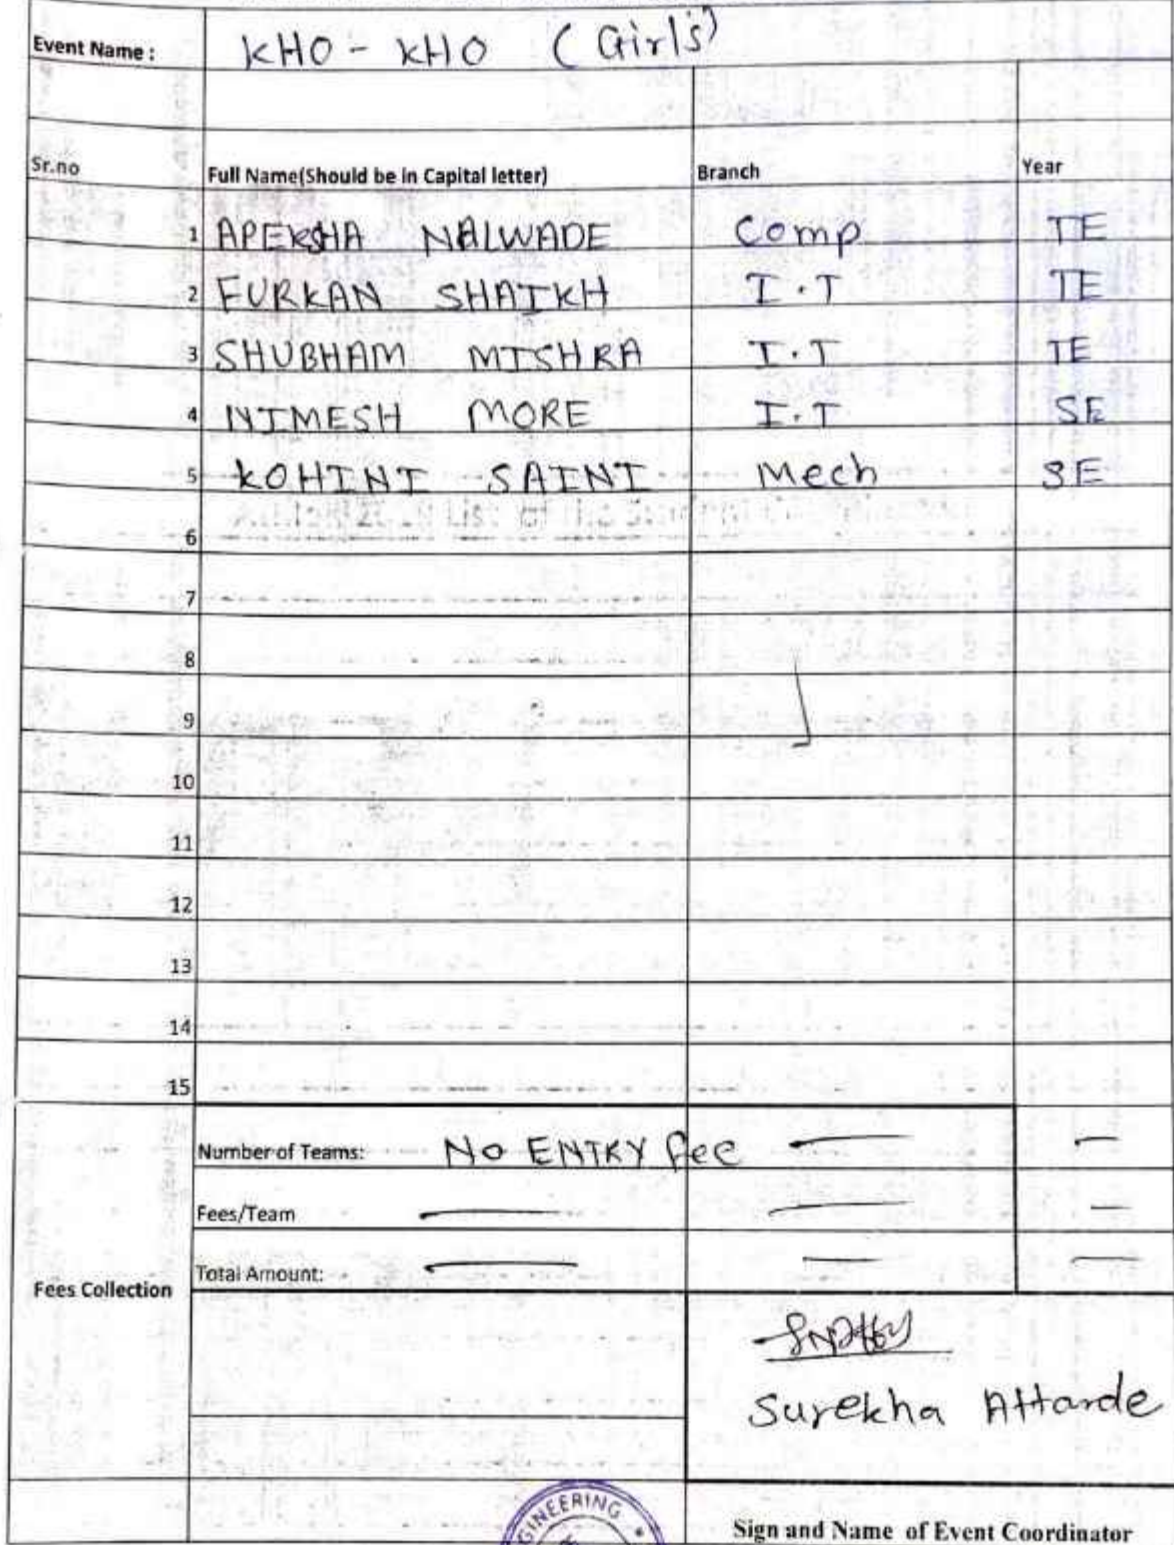 Event Name : KHO - KHO (Girl's)
Sr.no Full Name(Should be in Capital letter) Branch Year
1 APEKSHA NALWADE Comp TE
2 FURKAN SHAIKH I.T TE
3 SHUBHAM MISHRA I.T TE
4 NIMESH MORE I.T SE
5 KOHINI SAINI Mech SE
6
7
8
9
10
11
12
13
14
15
Number of Teams: No ENTRY fee — —
Fees/Team — — —
Total Amount: — — —
Fees Collection
Surekha Attarde
GINEERING
Sign and Name of Event Coordinator